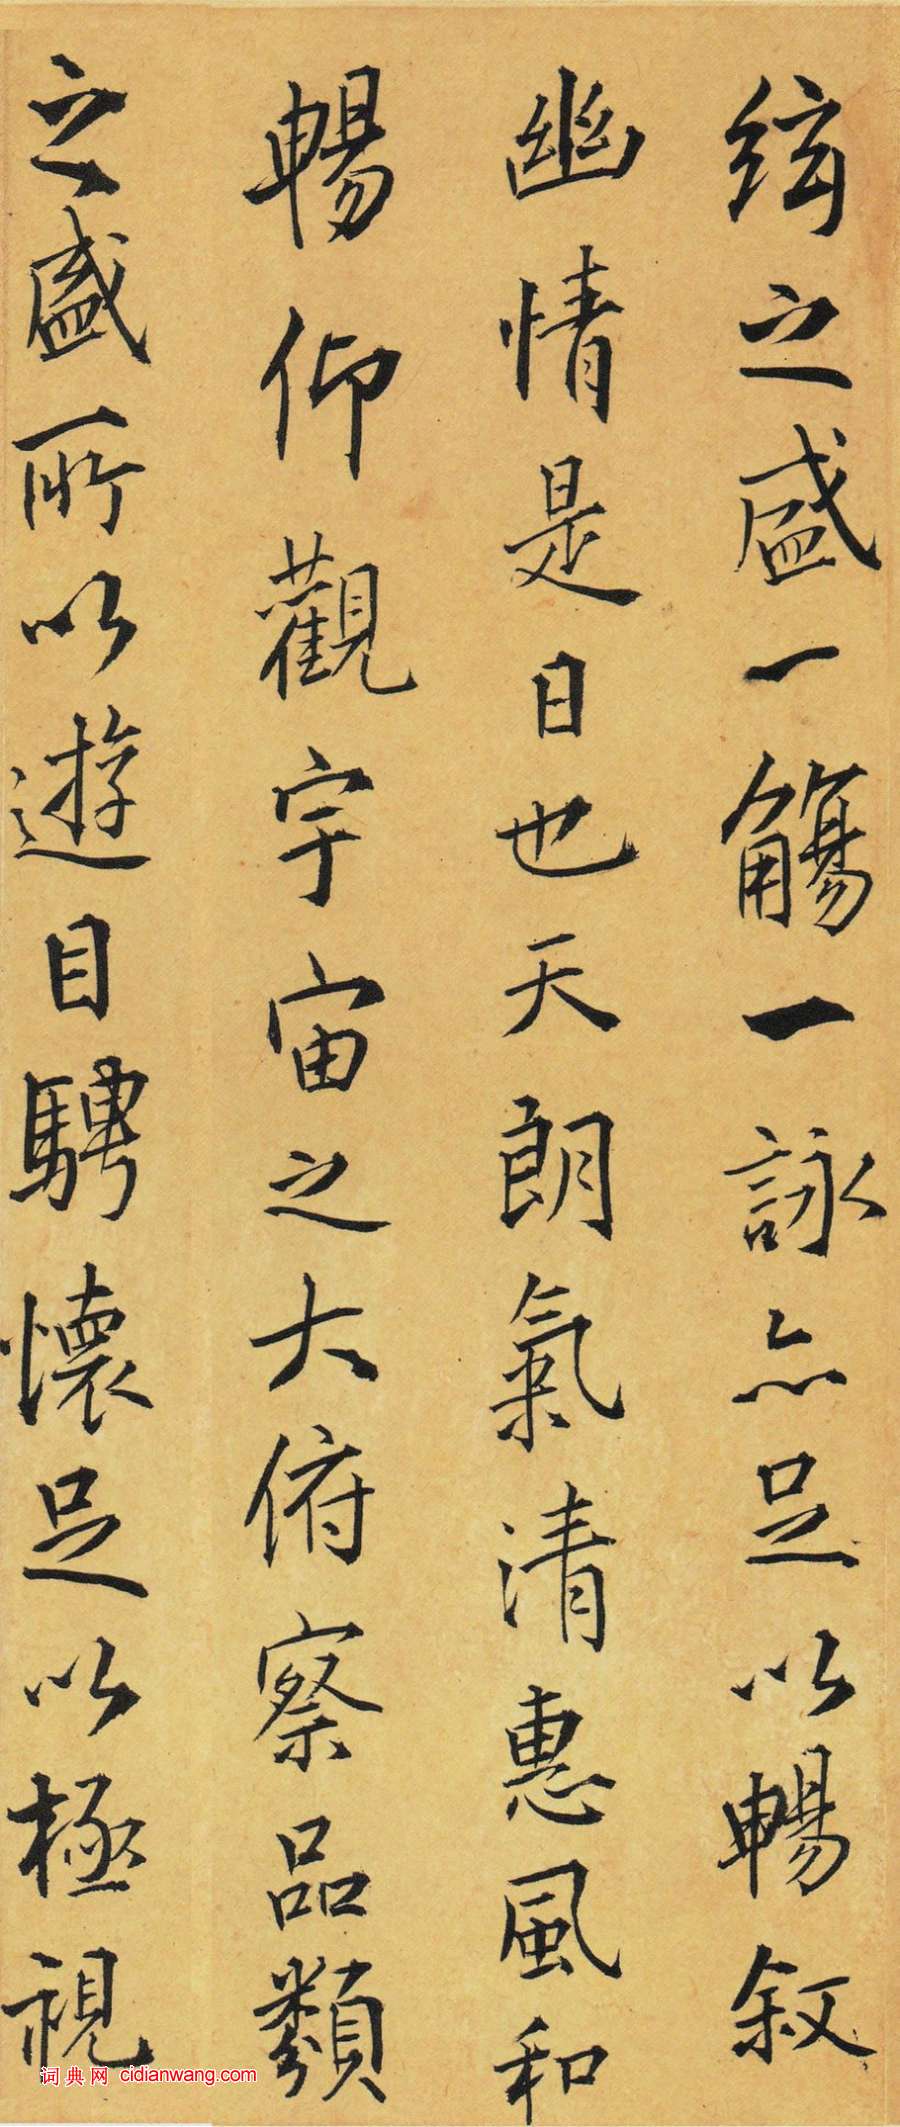 絃之盛一觴一詠亦足以暢敘
幽情是日也天朗氣清惠風和
暢仰觀宇宙之大俯察品類
之盛所以遊目騁懷足以極視
词典网 cidianwang.com